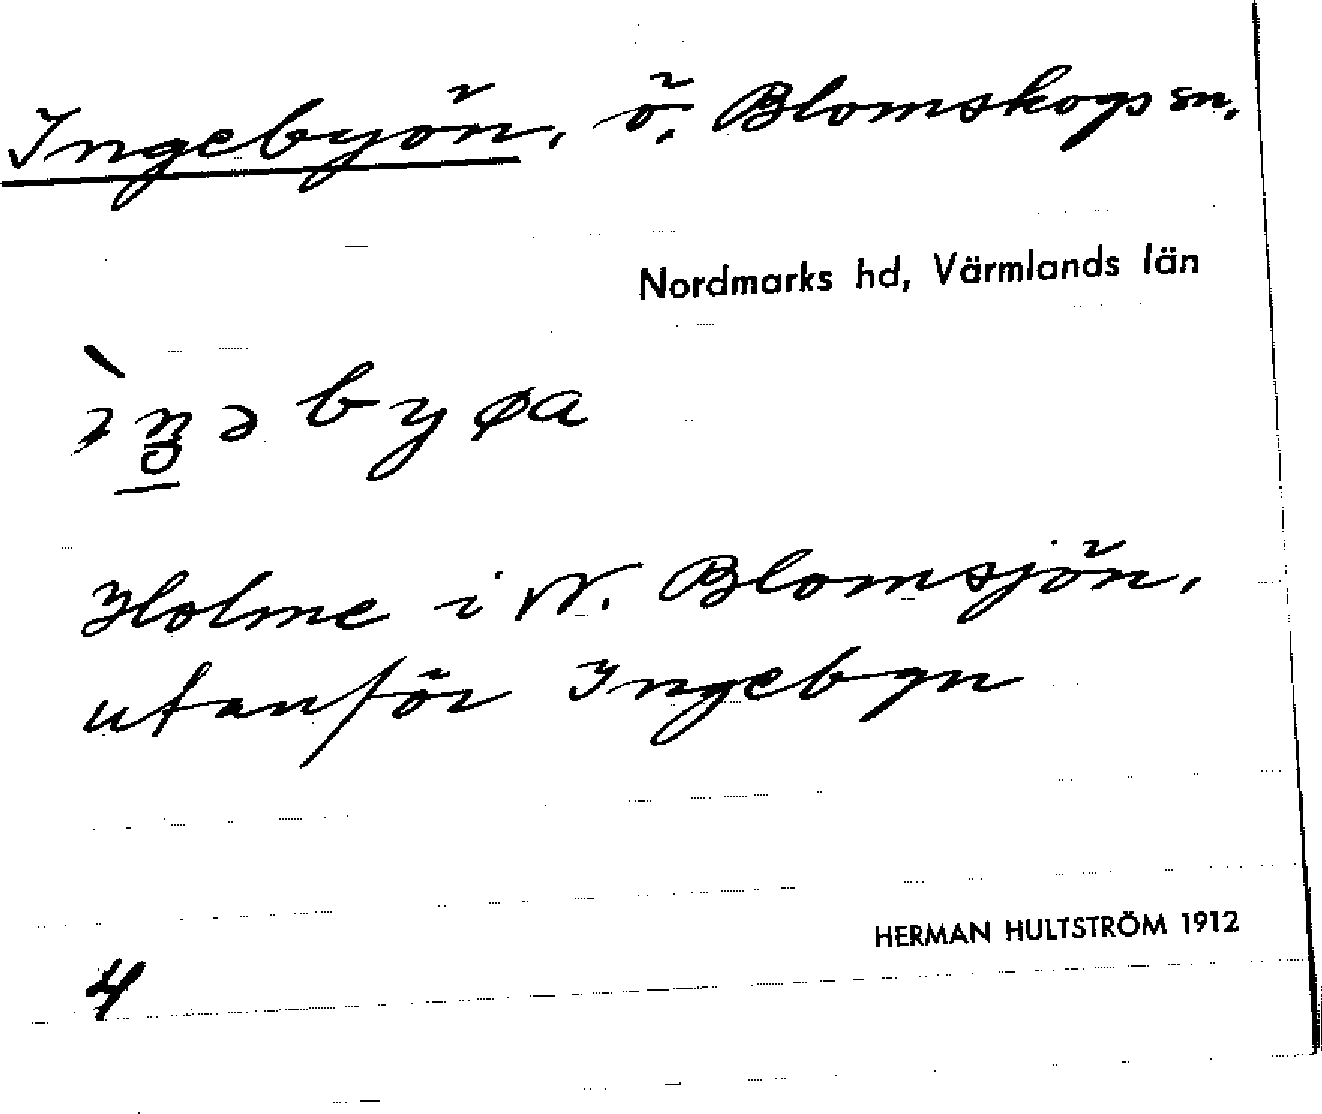 Ingebyön, ö. Blomskogs sn.
Nordmarks hd, Värmlands län
Holme i N. Blomsjön,
utanför Ingebyn
HERMAN HULTSTRÖM 1912
4